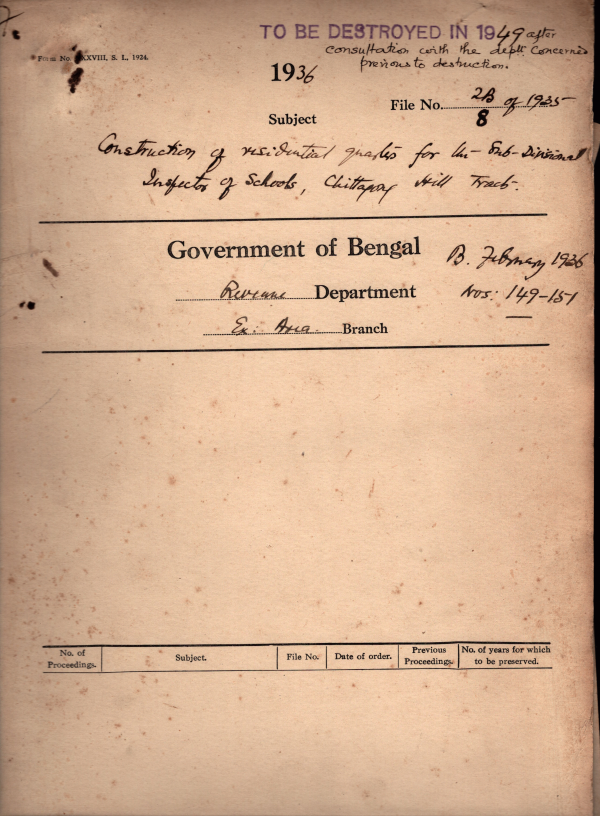 TO BE DESTROYED IN 1949 after
consultation with the deptt concerned
previous to destruction.
Form No XXVIII, S. L., 1924.
1936
File No. 2B/8 of 1935
Subject
Construction of residential quarters for the Sub-Divisional
Inspector of Schools, Chittagong Hill Tracts.
Government of Bengal
B. February 1936
Revenue Department
Nos: 149-151
Ex. Area Branch
No. of Proceedings.
Subject.
File No.
Date of order.
Previous Proceedings.
No. of years for which to be preserved.